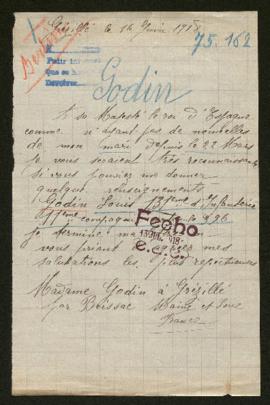 Grézillé le 16 Juin 1918
75.162
Berlin
Godin
A sa Majesté le roi d'Espagne
comme n'ayant pas de nouvelles
de mon mari depuis le 22 Mars
Je vous serais très reconnaissante
si vous pouviez me donner
quelques renseignements
Godin Louis 131eme d'Infanterie
11eme compagnie
Fecho
je termine
vous priant mes
salutations les plus respectueuses
Madame Godin à Grézillé
par Brissac Maine et Loire
France